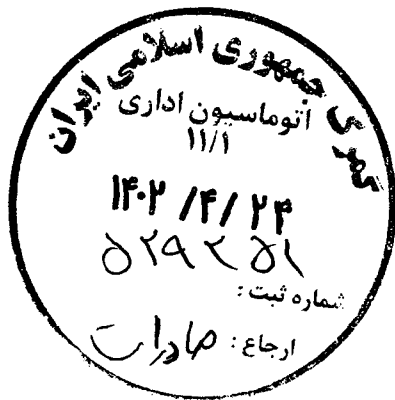 گمرک جمهوری اسلامی ایران
اتوماسیون اداری
۱۱/۱
۱۴۰۲ /۴/ ۲۴
۵۲۹۲۵۱
شماره ثبت :
ارجاع : صادرات